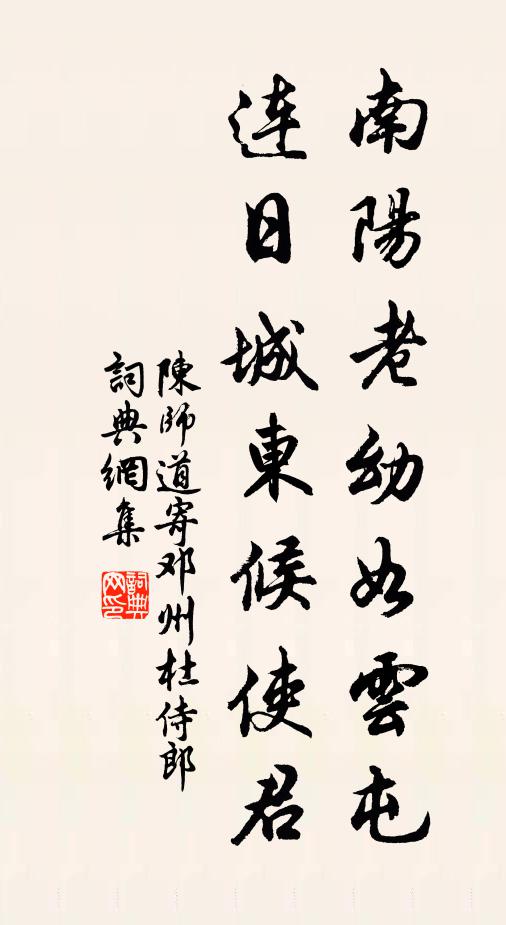 南陽老幼如雲屯
連日城東候使君
陳師道寄邓州杜侍郎
詞典網集
詞典网印